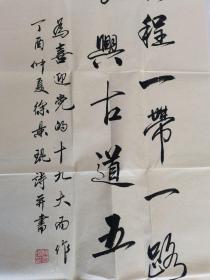 程一帶一路
興古道五
為喜迎党的十九大而作
丁酉仲夏徐景琨詩并書